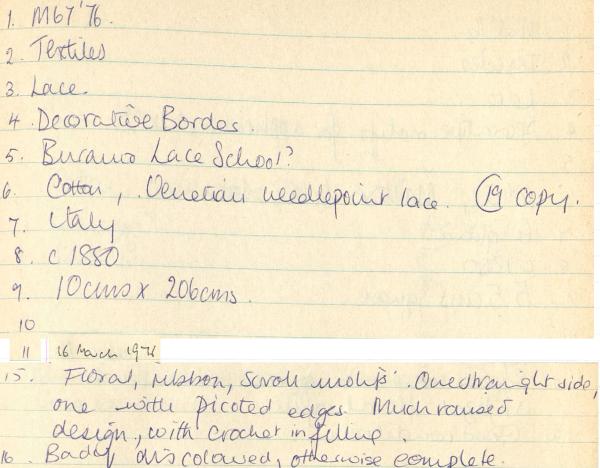 1. M67'76.
2. Textiles
3. Lace.
4. Decorative Border.
5. Burano Lace School?
6. Cotton, Venetian needlepoint lace. 19 copy.
7. Italy
8. c 1880
9. 10cms x 206cms.
10
11 16 March 1976
15. Floral, ribbon, scroll motifs. One straight side,
one with picoted edges. Much raised
design, with crochet in filling.
16. Badly discoloured, otherwise complete.